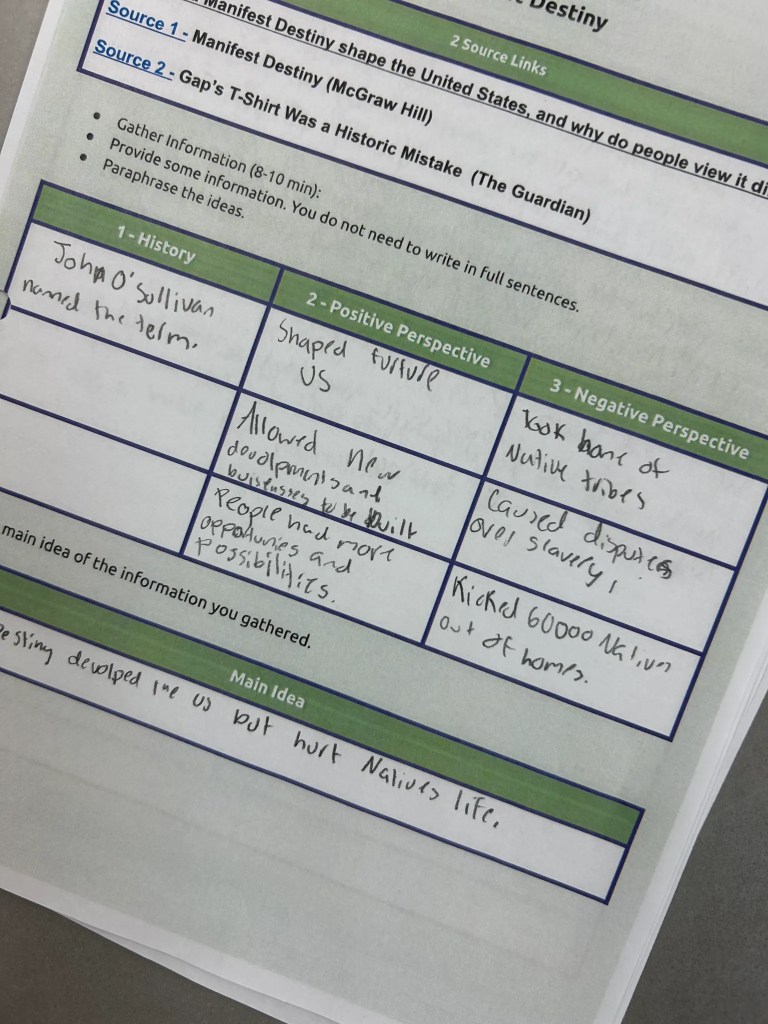 Destiny
2 Source Links
Manifest Destiny shape the United States, and why do people view it di
Source 1 - Manifest Destiny (McGraw Hill)
Source 2 - Gap's T-Shirt Was a Historic Mistake (The Guardian)
• Gather Information (8-10 min):
• Provide some information. You do not need to write in full sentences.
• Paraphrase the ideas.
1 - History
John O'Sullivan
named the term.
2 - Positive Perspective
Shaped furture
US
Allowed new
devolpments and
buisnesses to be built
People had more
oppotunies and
possibilities.
3 - Negative Perspective
Took home of
Native tribes
Caused disputes
over slavery,
Kicked 60000 Natives
out of homes.
main idea of the information you gathered.
Main Idea
devolped the US but hurt Natives life.